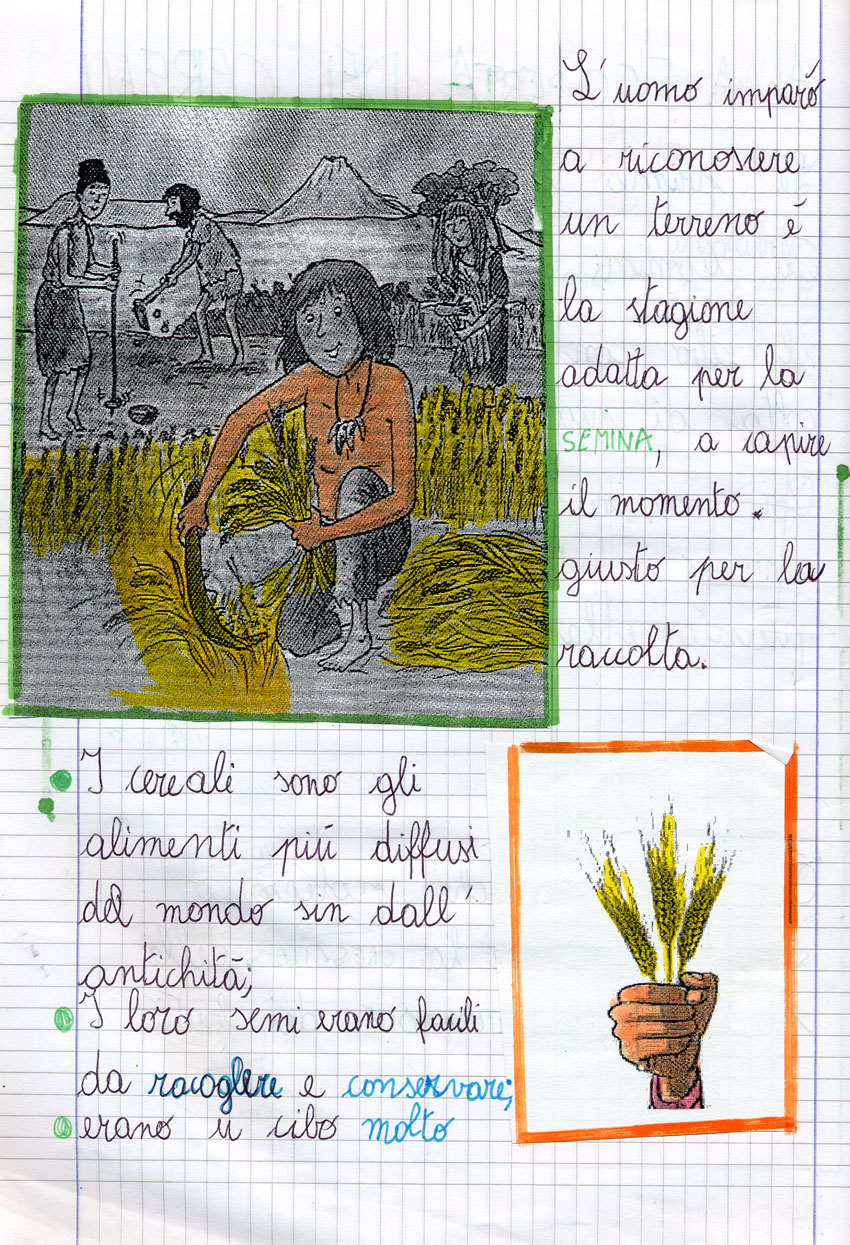 L'uomo imparó
a riconoscere
un terreno é
la stagione
adatta per la
SEMINA, a capire
il momento.
giusto per la
raccolta.
I cereali sono gli
alimenti piú diffusi
del mondo sin dall'
antichitá;
I loro semi erano facili
da racoglere e conservare;
erano u cibo molto